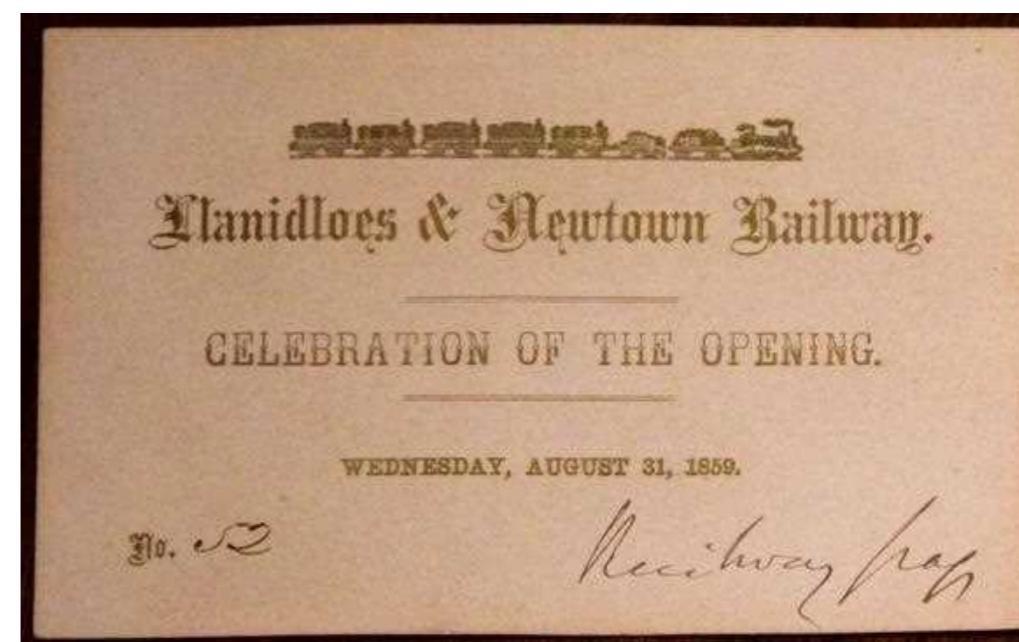 Llanidloes & Newtown Railway.
CELEBRATION OF THE OPENING.
WEDNESDAY, AUGUST 31, 1859.
No. 52
Railway